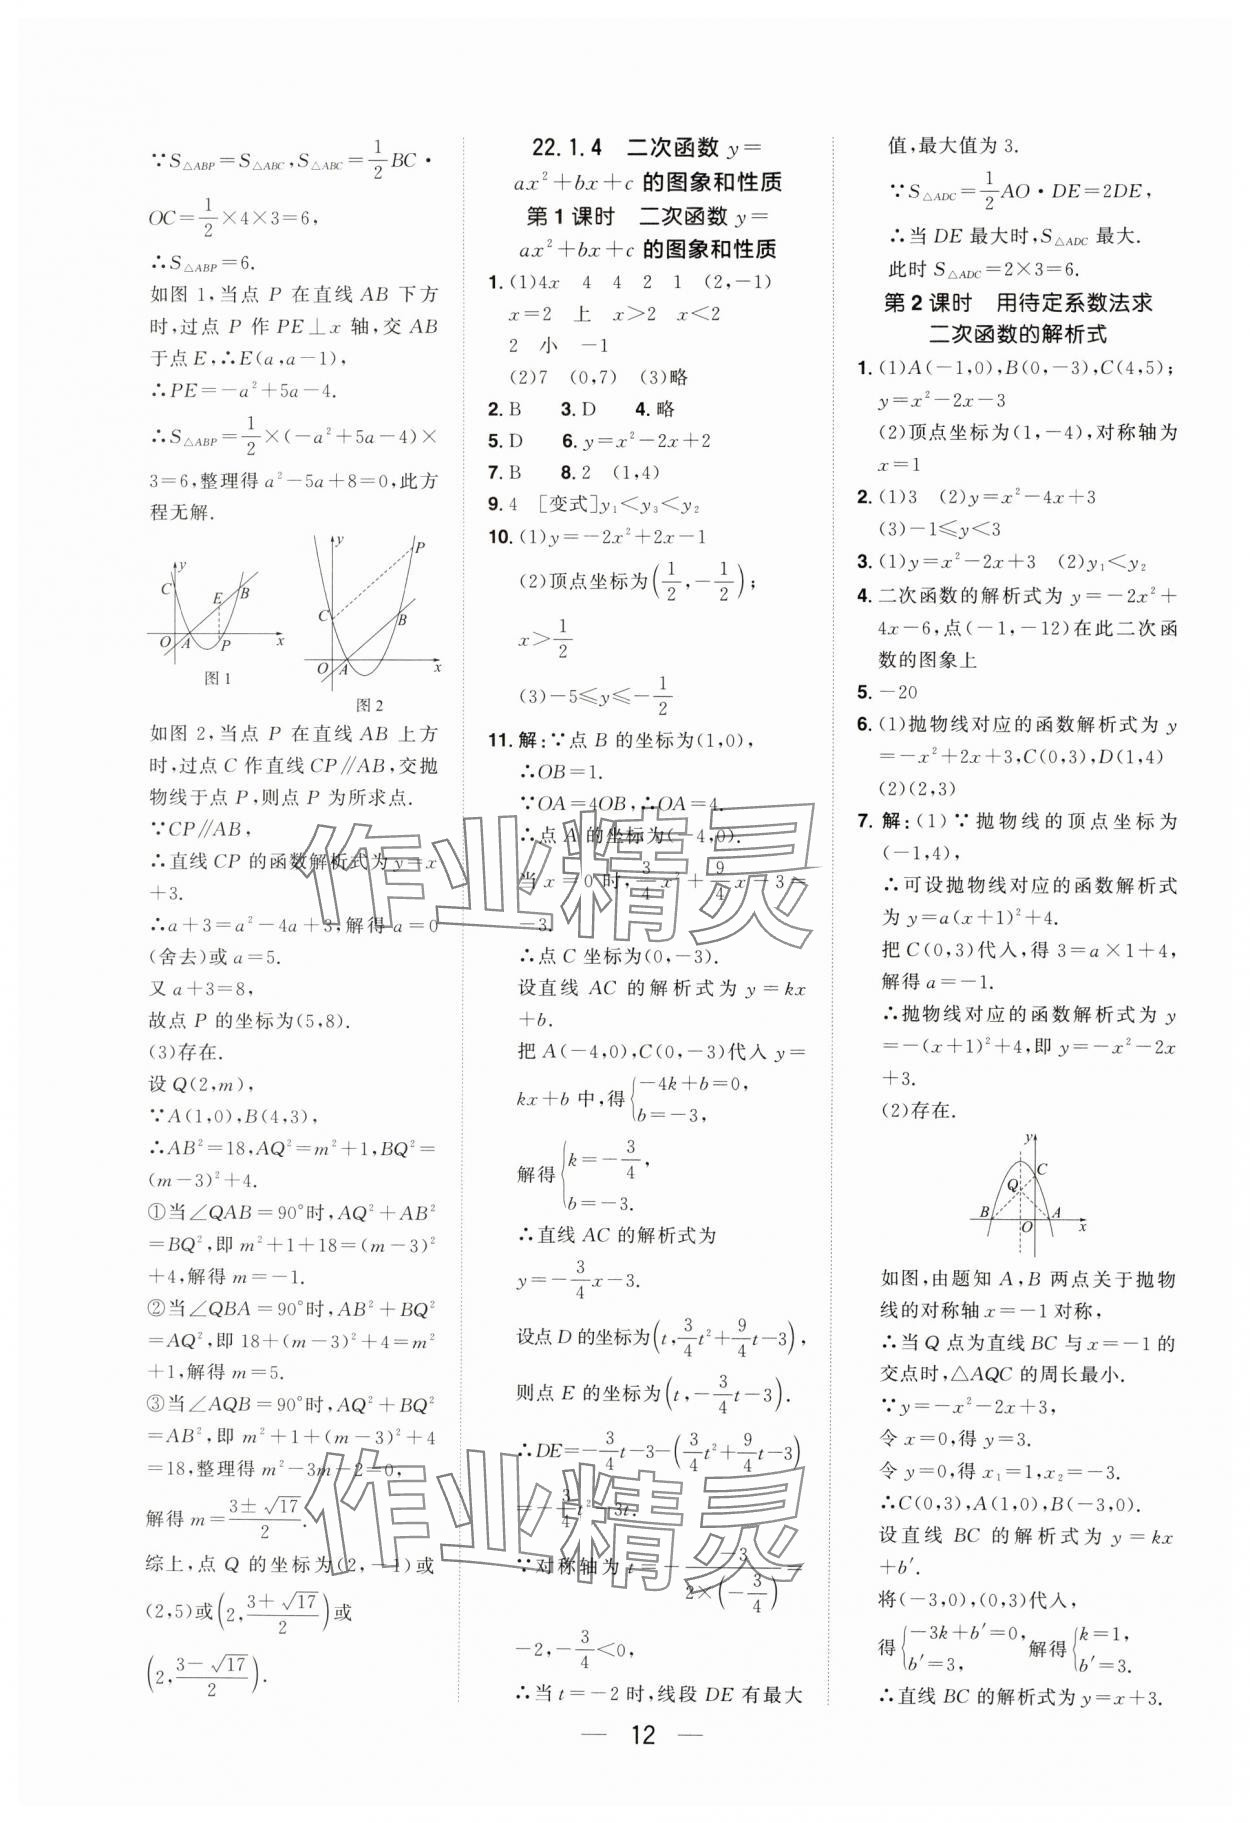 ∵S△ABP=S△ABC,S△ABC=1/2 BC·
OC=1/2×4×3=6,
∴S△ABP=6.
如图 1,当点 P 在直线 AB 下方
时,过点 P 作 PE⊥x 轴,交 AB
于点 E,∴E(a,a-1),
∴PE=-a²+5a-4.
∴S△ABP=1/2×(-a²+5a-4)×
3=6,整理得 a²-5a+8=0,此方
程无解.
y
C
E
B
O
A
P
x
图 1
y
P
C
B
O
A
x
图 2
如图 2,当点 P 在直线 AB 上方
时,过点 C 作直线 CP∥AB,交抛
物线于点 P,则点 P 为所求点.
∵CP∥AB,
∴直线 CP 的函数解析式为 y=x
+3.
∴a+3=a²-4a+3,解得 a=0
(舍去)或 a=5.
又 a+3=8,
故点 P 的坐标为(5,8).
(3)存在.
设 Q(2,m),
∵A(1,0),B(4,3),
∴AB²=18,AQ²=m²+1,BQ²=
(m-3)²+4.
①当∠QAB=90°时,AQ²+AB²
=BQ²,即 m²+1+18=(m-3)²
+4,解得 m=-1.
②当∠QBA=90°时,AB²+BQ²
=AQ²,即 18+(m-3)²+4=m²
+1,解得 m=5.
③当∠AQB=90°时,AQ²+BQ²
=AB²,即 m²+1+(m-3)²+4
=18,整理得 m²-3m-2=0,
解得 m=(3±√17)/2.
综上,点 Q 的坐标为(2,-1)或
(2,5)或(2,(3+√17)/2)或
(2,(3-√17)/2).
22.1.4 二次函数 y=
ax²+bx+c 的图象和性质
第 1 课时 二次函数 y=
ax²+bx+c 的图象和性质
1. (1)4x 4 4 2 1 (2,-1)
x=2 上 x>2 x<2
2 小 -1
(2)7 (0,7) (3)略
2. B 3. D 4. 略
5. D 6. y=x²-2x+2
7. B 8. 2 (1,4)
9. 4 [变式]y₁<y₃<y₂
10. (1)y=-2x²+2x-1
(2)顶点坐标为(1/2,-1/2);
x>1/2
(3)-5≤y≤-1/2
11. 解:∵点 B 的坐标为(1,0),
∴OB=1.
∵OA=4OB,∴OA=4.
∴点 A 的坐标为(-4,0).
当 x=0 时,3/4 x²+9/4 x-3=
-3.
∴点 C 坐标为(0,-3).
设直线 AC 的解析式为 y=kx
+b.
把 A(-4,0),C(0,-3)代入 y=
kx+b 中,得{-4k+b=0, b=-3,
解得{k=-3/4, b=-3.
∴直线 AC 的解析式为
y=-3/4 x-3.
设点 D 的坐标为(t,3/4 t²+9/4 t-3),
则点 E 的坐标为(t,-3/4 t-3).
∴DE=-3/4 t-3-(3/4 t²+9/4 t-3)
=-3/4 t²-3t.
∵对称轴为 t=- -3/(2×(-3/4))=
-2,-3/4<0,
∴当 t=-2 时,线段 DE 有最大
值,最大值为 3.
∵S△ADC=1/2 AO·DE=2DE,
∴当 DE 最大时,S△ADC 最大.
此时 S△ADC=2×3=6.
第 2 课时 用待定系数法求
二次函数的解析式
1. (1)A(-1,0),B(0,-3),C(4,5);
y=x²-2x-3
(2)顶点坐标为(1,-4),对称轴为
x=1
2. (1)3 (2)y=x²-4x+3
(3)-1≤y<3
3. (1)y=x²-2x+3 (2)y₁<y₂
4. 二次函数的解析式为 y=-2x²+
4x-6,点(-1,-12)在此二次函
数的图象上
5. -20
6. (1)抛物线对应的函数解析式为 y
=-x²+2x+3,C(0,3),D(1,4)
(2)(2,3)
7. 解:(1)∵抛物线的顶点坐标为
(-1,4),
∴可设抛物线对应的函数解析式
为 y=a(x+1)²+4.
把 C(0,3)代入,得 3=a×1+4,
解得 a=-1.
∴抛物线对应的函数解析式为 y
=-(x+1)²+4,即 y=-x²-2x
+3.
(2)存在.
y
C
Q
B
O
A
x
如图,由题知 A,B 两点关于抛物
线的对称轴 x=-1 对称,
∴当 Q 点为直线 BC 与 x=-1 的
交点时,△AQC 的周长最小.
∵y=-x²-2x+3,
令 x=0,得 y=3.
令 y=0,得 x₁=1,x₂=-3.
∴C(0,3),A(1,0),B(-3,0).
设直线 BC 的解析式为 y=kx
+b′.
将(-3,0),(0,3)代入,
得{-3k+b′=0, b′=3, 解得{k=1, b′=3.
∴直线 BC 的解析式为 y=x+3.
— 12 —
作业精灵
作业精灵